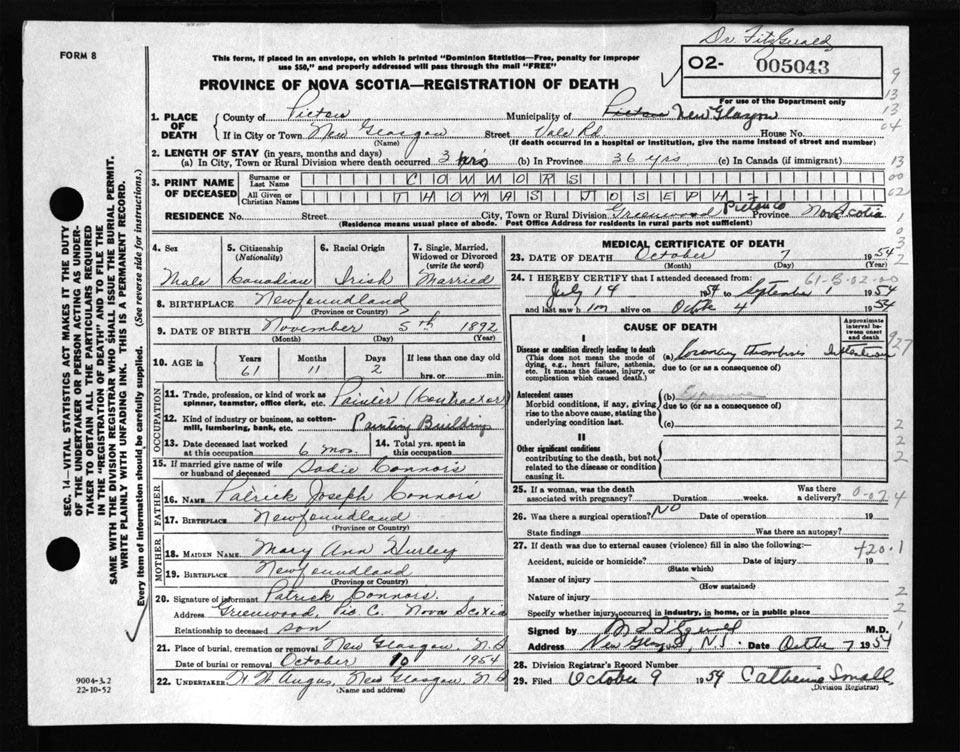 Dr. FitzGerald
FORM 8
This form, if placed in an envelope, on which is printed "Dominion Statistics—Free, penalty for improper
use $50," and properly addressed will pass through the mail "FREE"
02- 005043
PROVINCE OF NOVA SCOTIA—REGISTRATION OF DEATH
For use of the Department only
1. PLACE OF DEATH
County of Pictou Municipality of Pictou New Glasgow
If in City or Town New Glasgow Street Vale Rd. House No.
(Name) (If death occurred in a hospital or institution, give the name instead of street and number)
2. LENGTH OF STAY (in years, months and days)
(a) In City, Town or Rural Division where death occurred 3 hrs (b) In Province 36 yrs (c) In Canada (if immigrant)
3. PRINT NAME OF DECEASED
Surname or Last Name CONNORS
All Given or Christian Names THOMAS JOSEPH
RESIDENCE No. Street City, Town or Rural Division Greenwood Pictou Co Province Nova Scotia
(Residence means usual place of abode. Post Office Address for residents in rural parts not sufficient)
4. Sex Male
5. Citizenship (Nationality) Canadian
6. Racial Origin Irish
7. Single, Married, Widowed or Divorced (write the word) Married
8. BIRTHPLACE Newfoundland
(Province or Country)
9. DATE OF BIRTH November 5th 1892
(Month) (Day) (Year)
10. AGE in Years 61 Months 11 Days 2 If less than one day old hrs. or min.
OCCUPATION
11. Trade, profession, or kind of work as spinner, teamster, office clerk, etc. Painter (Contractor)
12. Kind of industry or business, as cotton-mill, lumbering, bank, etc. Painting Buildings
13. Date deceased last worked at this occupation 6 mos. 14. Total yrs. spent in this occupation
15. If married give name of wife or husband of deceased Sadie Connors
FATHER
16. NAME Patrick Joseph Connors
17. BIRTHPLACE Newfoundland
(Province or Country)
MOTHER
18. MAIDEN NAME Mary Ann Hurley
19. BIRTHPLACE Newfoundland
(Province or Country)
20. Signature of informant Patrick Connors
Address Greenwood, Pic. C. Nova Scotia
Relationship to deceased son
21. Place of burial, cremation or removal New Glasgow, N.S
Date of burial or removal October 10 1954
22. UNDERTAKER H W Angus, New Glasgow, N.S
(Name and address)
MEDICAL CERTIFICATE OF DEATH
23. DATE OF DEATH October 7 1954
(Month) (Day) (Year)
24. I HEREBY CERTIFY that I attended deceased from:
61-B-02-00
July 14 1954 to September 1 1954
and last saw him alive on Octbr 1954
CAUSE OF DEATH
Approximate interval between onset and death
I
Disease or condition directly leading to death
(This does not mean the mode of dying, e.g., heart failure, asthenia, etc. It means the disease, injury, or complication which caused death.)
(a) Coronary thrombosis
due to (or as a consequence of)
Antecedent causes
Morbid conditions, if any, giving rise to the above cause, stating the underlying condition last.
(b)
due to (or as a consequence of)
(c)
II
Other significant conditions
contributing to the death, but not related to the disease or condition causing it.
25. If a woman, was the death associated with pregnancy? Duration weeks. Was there a delivery?
26. Was there a surgical operation? NO Date of operation 19
State findings Was there an autopsy?
27. If death was due to external causes (violence) fill in also the following:— 420.1
Accident, suicide or homicide? Date of injury 19
(State which)
Manner of injury
(How sustained)
Nature of injury
Specify whether injury occurred in industry, in home, or in public place
Signed by M.D.
Address New Glasgow, N.S. Date Octbr 7 1954
28. Division Registrar's Record Number
29. Filed October 9 1954 Catherine Small
(Division Registrar)
SEC. 14—VITAL STATISTICS ACT MAKES IT THE DUTY
OF THE UNDERTAKER OR PERSON ACTING AS UNDER-
TAKER TO OBTAIN ALL THE PARTICULARS REQUIRED
IN THE "REGISTRATION OF DEATH" AND TO FILE THE
SAME WITH THE DIVISION REGISTRAR WHO SHALL ISSUE THE BURIAL PERMIT.
WRITE PLAINLY WITH UNFADING INK. THIS IS A PERMANENT RECORD.
Every item of information should be carefully supplied. (See reverse side for instructions.)
9004-3.2
22-10-52